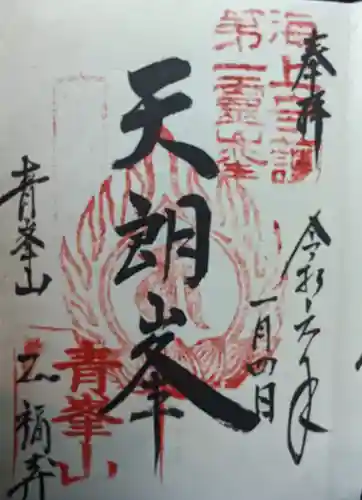 奉拝
令和六年
一月四日
海上守護
第一霊峰
天朗峯
青峯山
正福寺
青峯山